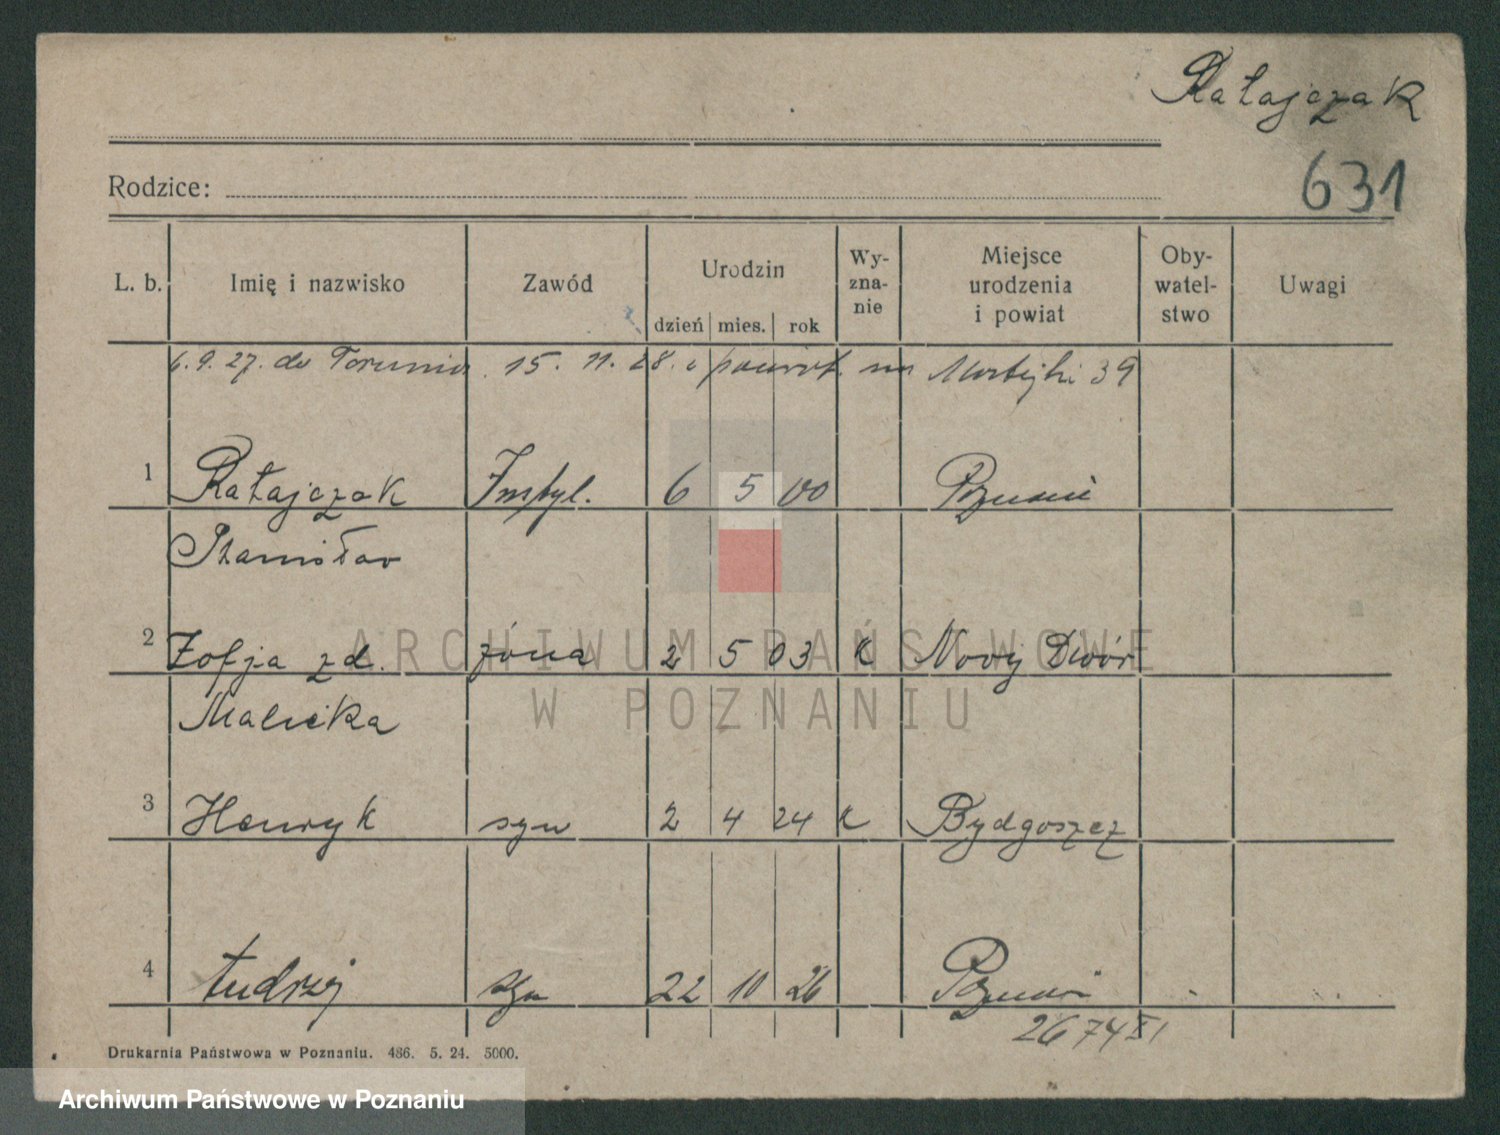 Ratajczak
631
Rodzice:
L. b. Imię i nazwisko Zawód Urodzin dzień mies. rok Wy-zna-nie Miejsce urodzenia i powiat Oby-watel-stwo Uwagi
6.9.27. do Torunia. 15. 11. 28. z powrot. 39
1 Ratajczak 6 5 00 Poznań
Stanisław
2 Zofja zd. żona 2 5 03 k Nowy Dwór
Malicka
3 Henryk syn 2 4 24 k Bydgoszcz
4 Andrzej syn 22 10 26 Poznań
2674 XI
Drukarnia Państwowa w Poznaniu. 486. 5. 24. 5000.
ARCHIWUM PAŃSTWOWE
W POZNANIU
Archiwum Państwowe w Poznaniu